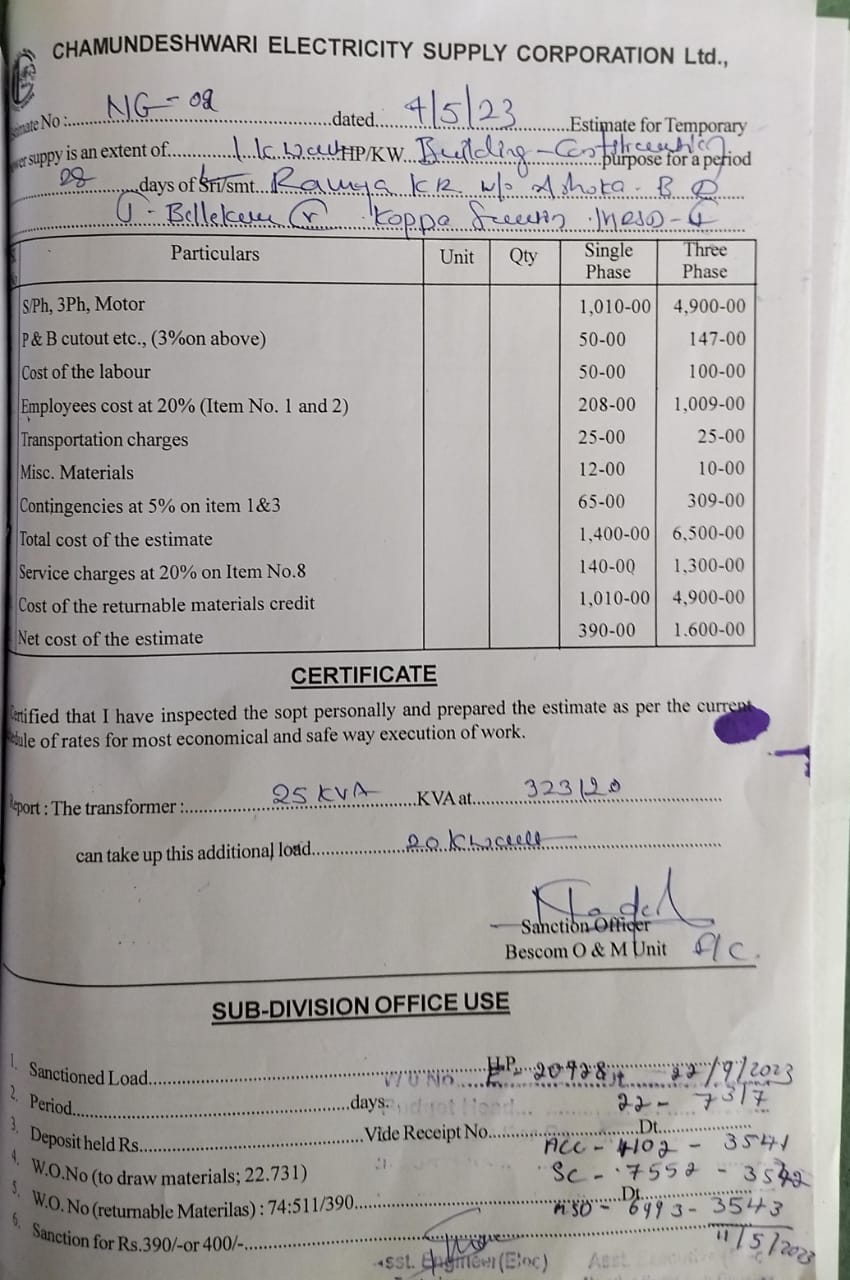 CHAMUNDESHWARI ELECTRICITY SUPPLY CORPORATION Ltd.,
No :..........NG-02..........dated..........4/5/23..........Estimate for Temporary
suppy is an extent of..........1 k.watt HP/KW..Building - purpose for a period
28 days of Sri/smt..Ramya K R w/o Ashoka - B
Koppa
Particulars Unit Qty Single Phase Three Phase
S/Ph, 3Ph, Motor 1,010-00 4,900-00
P & B cutout etc., (3%on above) 50-00 147-00
Cost of the labour 50-00 100-00
Employees cost at 20% (Item No. 1 and 2) 208-00 1,009-00
Transportation charges 25-00 25-00
Misc. Materials 12-00 10-00
Contingencies at 5% on item 1&3 65-00 309-00
Total cost of the estimate 1,400-00 6,500-00
Service charges at 20% on Item No.8 140-00 1,300-00
Cost of the returnable materials credit 1,010-00 4,900-00
Net cost of the estimate 390-00 1.600-00
CERTIFICATE
Certified that I have inspected the sopt personally and prepared the estimate as per the current
of rates for most economical and safe way execution of work.
Report : The transformer :..........25 KVA..........KVA at..........323/20
can take up this additional load..........20 K
Sanction Officer
Bescom O & M Unit
SUB-DIVISION OFFICE USE
1. Sanctioned Load..........H.P. 20928 22/9/2023
2. Period..........days. 22 - 73/7
3. Deposit held Rs..........Vide Receipt No..........Dt..........
ACC - 4102 - 3541
4. W.O.No (to draw materials; 22.731) SC - 7552 - 3542
5. W.O. No (returnable Materilas) : 74:511/390..........Dt..........
MSD - 6993 - 3543
6. Sanction for Rs.390/-or 400/-.......... 11/5/2023
Asst. Engineer (Elec)